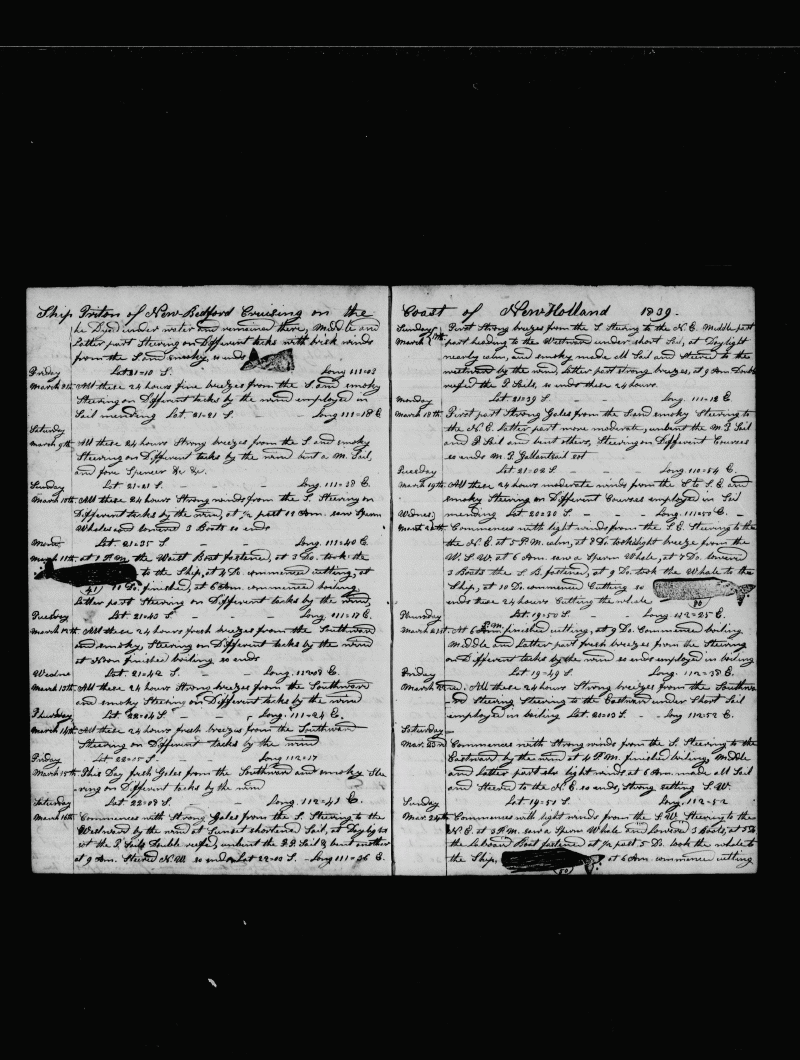 Ship Triton of New Bedford Cruising on the
he Died under water and remained there, Middle and
Latter part Steering on Different tacks with brisk winds
from the S and smoky, so ends
Friday Lat 21=10 S. Long 111=03
March All these 24 hours fine breezes from the S and smoky
Steering on Different tacks by the wind employed in
Sail mending Lat. 21=21 S. - Long 111=18 E
Saturday
March 9th All these 24 hours Strong breezes from the S and smoky
Steering on Different tacks by the wind bent a M. Sail
and fore Spencer &c &c.
Sunday Lat 21=21 S. - - - Long. 111=28 E.
March 10th All these 24 hours Strong winds from the S. Steering on
Different tacks by the wind, at ½ past 10 Am. saw Sperm
Whales and lowered 3 Boats so ends
Mond. Lat 21=35 - - - Long 111=40 E.
March 11th at 1 P.M. the Waist Boat fastened, at 3 Do. took the
to the Ship, at 4 Do commenced cutting, at
41 10 Do. finished, at 6 Am commence boiling
Latter part Steering on Different tacks by the wind,
Tuesday Lat 21=43 S - - - Long 111=17 E.
March 12th All these 24 hours fresh breezes from the Southward
and smoky, Steering on Different tacks by the wind
at Noon finished boiling so ends
Wedne Lat. 21=42 - - - Long. 112=08 E.
March 13th All these 24 hours Strong breezes from the Southward
and smoky Steering on Different tacks by the wind
Thursday Lat 22=04 S - - Long. 111=24 E.
March 14th All these 24 hours fresh breezes from the Southward
Steering on Different tacks by the wind
Friday Lat 22=15 S. - Long 112=17
March 15th This Day fresh Gales from the Southward and smoky Stee
ring on Different tacks by the wind
Saturday Lat. 22=07 S. - - Long. 112=41 E.
March 16th Commences with Strong Gales from the S. Steering to the
Westward by the wind at Sunset shortened Sail, at Day light
set the T. Sails Double reefed, unbent the Sail & bent another
at 9 Am. Steered N.W. so ends Lat 22=00 S. - Long 111=36 E.
Coast of New Holland 1839.
Sunday First Strong breezes from the S Steering to the N.E. Middle part
March 17th part heading to the Westward under short Sail, at Day light
nearly calm, and smoky made all Sail and Steered to the
westward by the wind, Latter part strong breezes, at 9 Am. Double
reefed the T Sails, so ends these 24 hours.
Monday Lat 21=39 S. - - Long. 111=18 E.
March 18th First part Strong Gales from the S and smoky Steering to
the N.E. Latter part more moderate, unbent the M. T Sail
and F Sail and bent others, Steering on Different Courses
so ends M. T Gallantsail set
Tuesday Lat 21=02 S. - - Long 110=54 E.
March 19th All these 24 hours moderate winds from the S. to S. E and
smoky Steering on Different Courses employed in Sail
Wednes. mending Lat 20=30 S. - - Long. 111=50 E. -
March 20th Commences with light winds from the S. E. Steering to the
the N. E. at 5 P.M. calm, at 7 Do. took light breeze from the
W.S.W. at 6 Am. saw a Sperm Whale, at 7 Do. lowered
3 Boats the S. B. fastened, at 9 Do. took the Whale to the
Ship, at 10 Do. commenced Cutting so
ends these 24 hours Cutting the whale 80
Thursday Lat. 19=50 S. - Long 112=25 E.
March 21st. At 6 P.M. finished cutting, at 9 Do. Commenced boiling
Middle and Latter part fresh breezes from the Steering
on Different tacks by the wind so ends employed in boiling
Friday Lat 19=49 S. Long. 112=38 E.
March 22nd. All these 24 hours Strong breezes from the Southwa
-rd Steering Steering to the Eastward under Short Sail
employed in boiling Lat. 20=13 S. - Long 112=52 E.
Saturday -
Mar. 23rd Commences with Strong winds from the S. Steering to the
Eastward by the wind at 4 P.M. finished boiling, Middle
and Latter part also light winds at 6 Am. made all Sail
and Steered to the N.E. so ends, Strong setting S.W.
Sunday Lat 19=51 S. - - Long. 112=52
Mar. 24th Commences with light winds from the S. W. Steering to the
N. E. at 3 P.M. saw a Sperm Whale and lowered 3 Boats, at 5 Do
the Larboard Boat fastened at ½ past 5 Do. took the whale to
the Ship, 80 at 6 Am. commence cutting